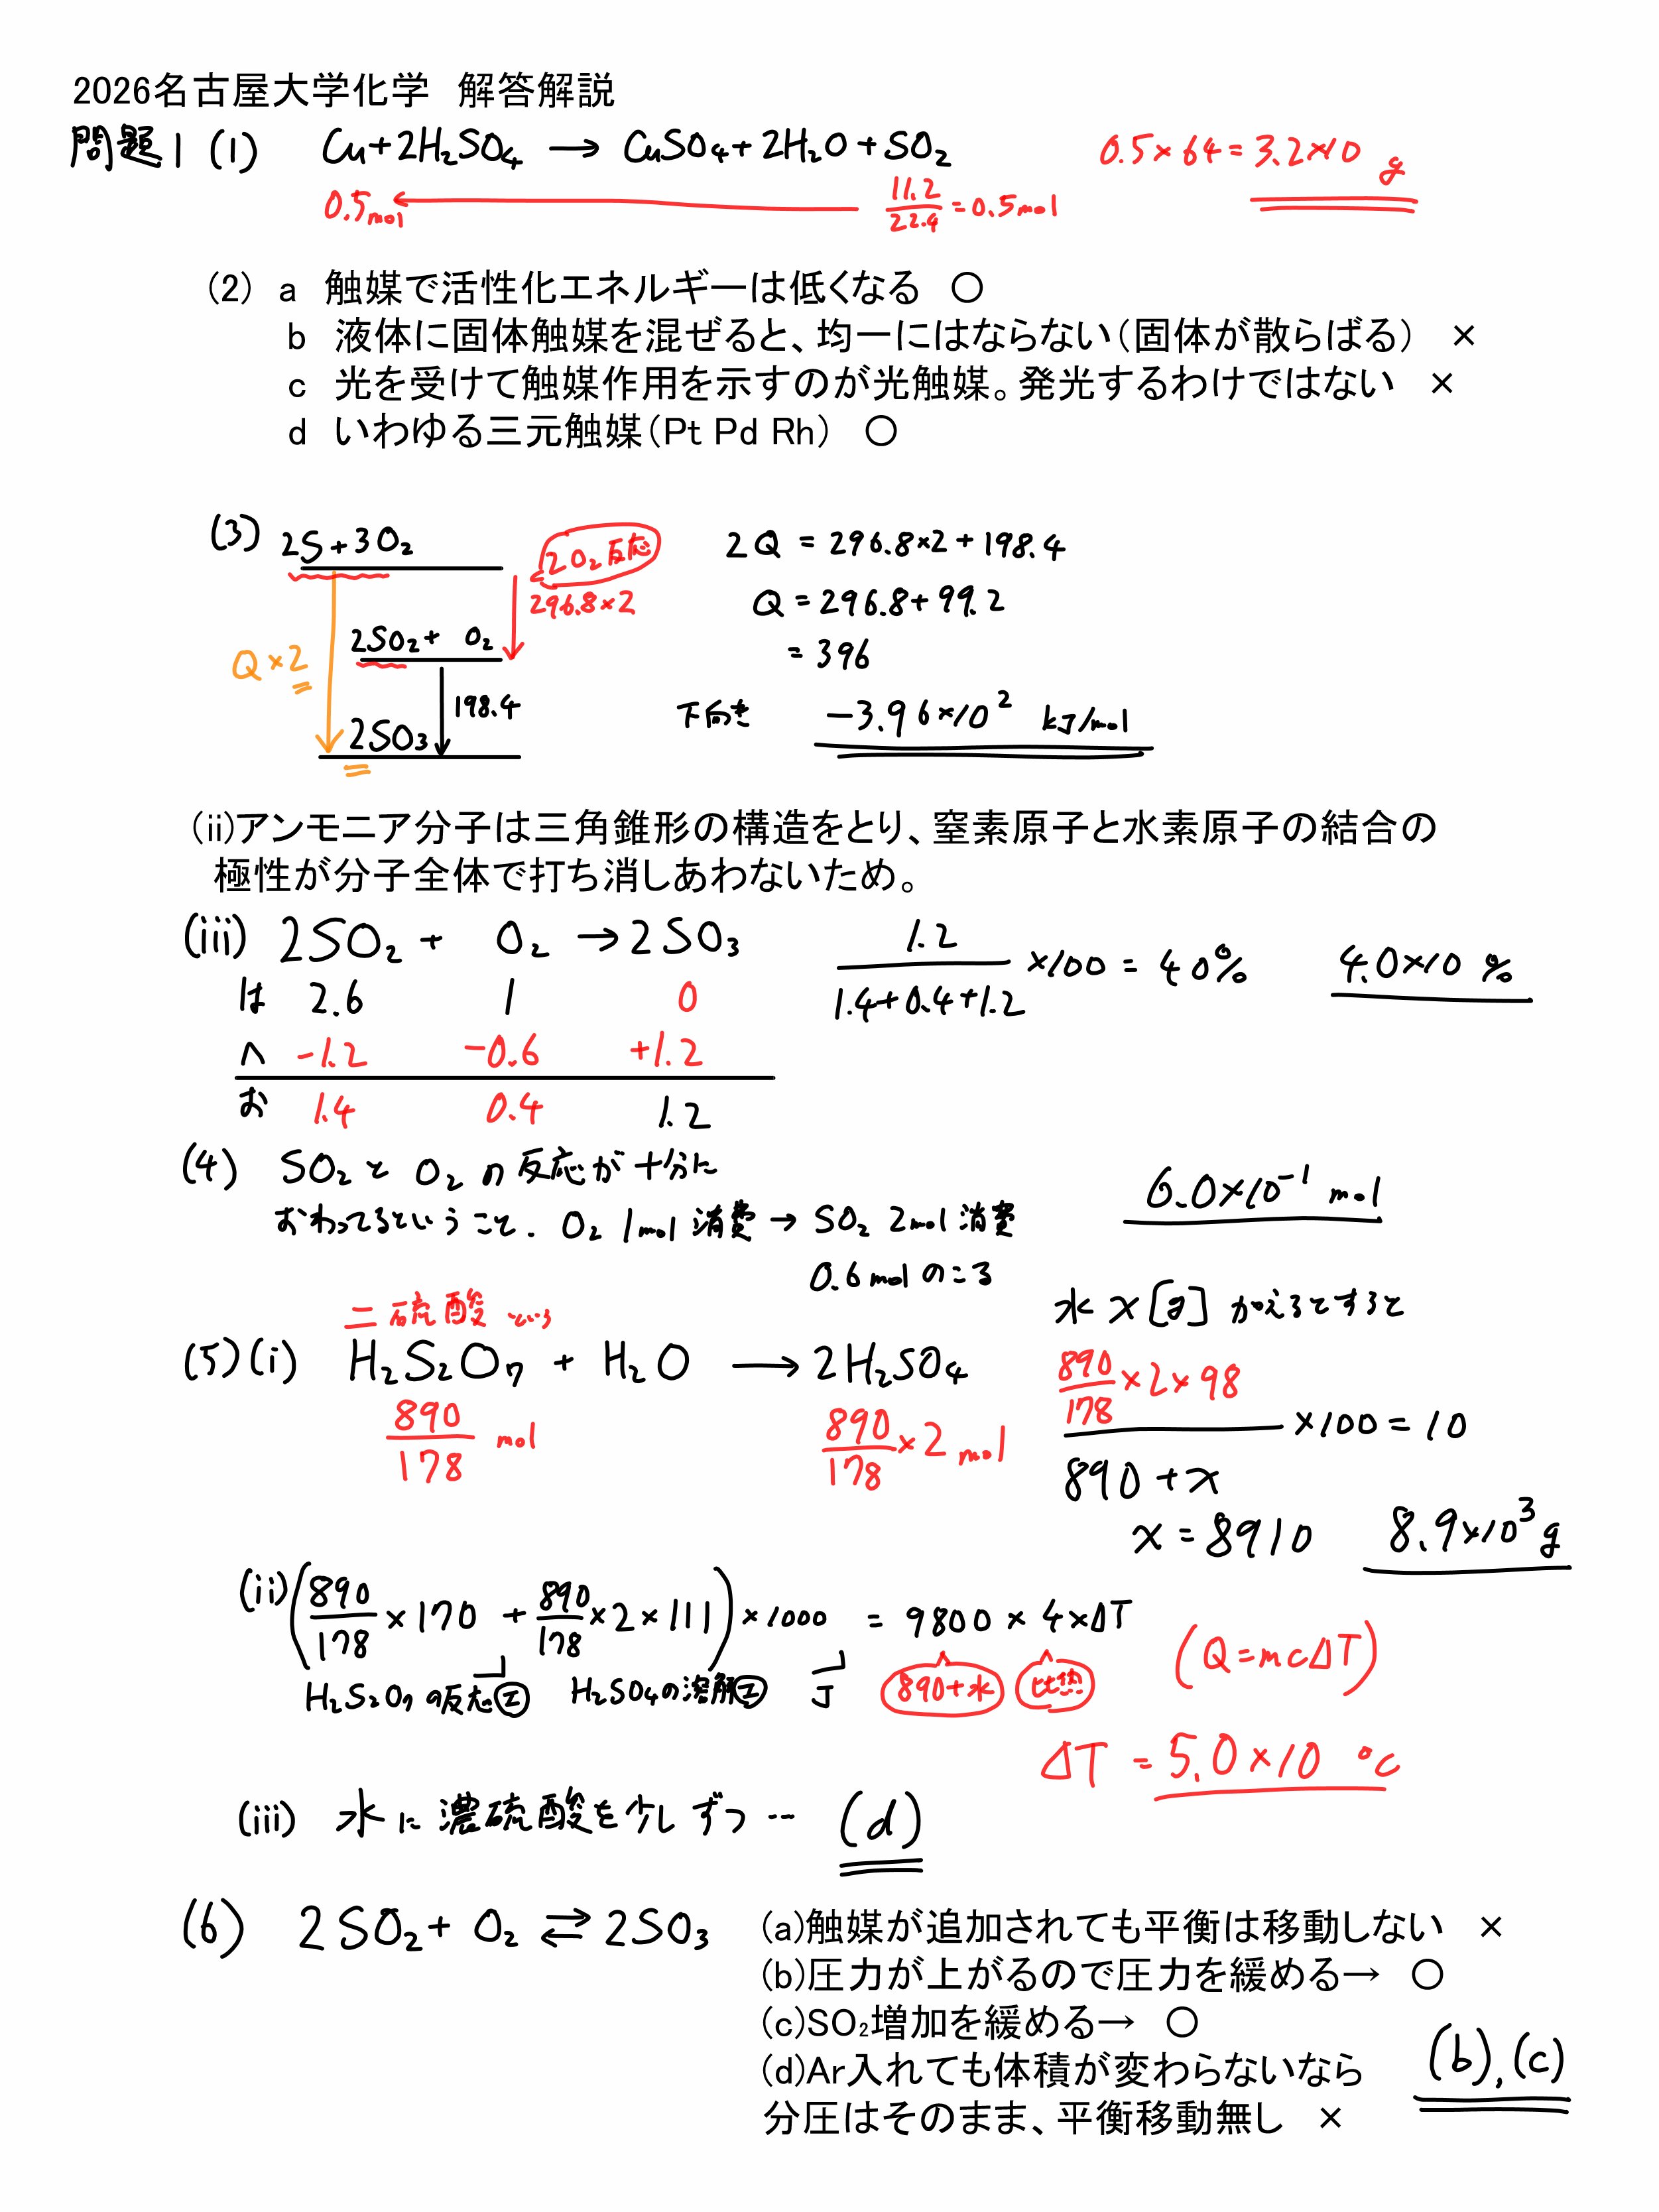 2026名古屋大学化学　解答解説
問題1 (1) Cu+2H₂SO₄ → CuSO₄+2H₂O+SO₂ 0.5×64=3.2×10 g
0.5mol ← 11.2/22.4=0.5mol
(2) a 触媒で活性化エネルギーは低くなる ○
b 液体に固体触媒を混ぜると、均一にはならない（固体が散らばる） ×
c 光を受けて触媒作用を示すのが光触媒。発光するわけではない ×
d いわゆる三元触媒（Pt Pd Rh） ○
(3) 2S+3O₂
2O₂反応
296.8×2
2SO₂+ O₂
Q×2
198.4
2SO₃
2Q = 296.8×2+198.4
Q = 296.8+99.2
= 396
下向き −3.96×10² kJ/mol
(ii)アンモニア分子は三角錐形の構造をとり、窒素原子と水素原子の結合の
極性が分子全体で打ち消しあわないため。
(iii) 2SO₂ + O₂ → 2SO₃ 1.2/(1.4+0.4+1.2) ×100 = 40% 4.0×10 %
は 2.6 1 0
へ -1.2 -0.6 +1.2
お 1.4 0.4 1.2
(4) SO₂と O₂の反応が十分に
おわってるということ. O₂ 1mol 消費 → SO₂ 2mol 消費 6.0×10⁻¹ mol
0.6molのこる
二硫酸という
(5)(i) H₂S₂O₇ + H₂O → 2H₂SO₄
890/178 mol 890/178×2 mol
水 x [g] 加えるとすると
(890/178×2×98)/(890+x) ×100=10
x=8910 8.9×10³g
(ii)(890/178×170 + 890/178×2×111)×1000 = 9800×4×ΔT (Q=mcΔT)
H₂S₂O₇の反応エ H₂SO₄の溶解エ J 890+水 比熱
ΔT =5.0×10 ℃
(iii) 水に濃硫酸を少しずつ… (d)
(6) 2SO₂+ O₂ ⇄ 2SO₃
(a)触媒が追加されても平衡は移動しない ×
(b)圧力が上がるので圧力を緩める→ ○
(c)SO₂増加を緩める→ ○
(d)Ar入れても体積が変わらないなら
分圧はそのまま、平衡移動無し ×
(b),(c)